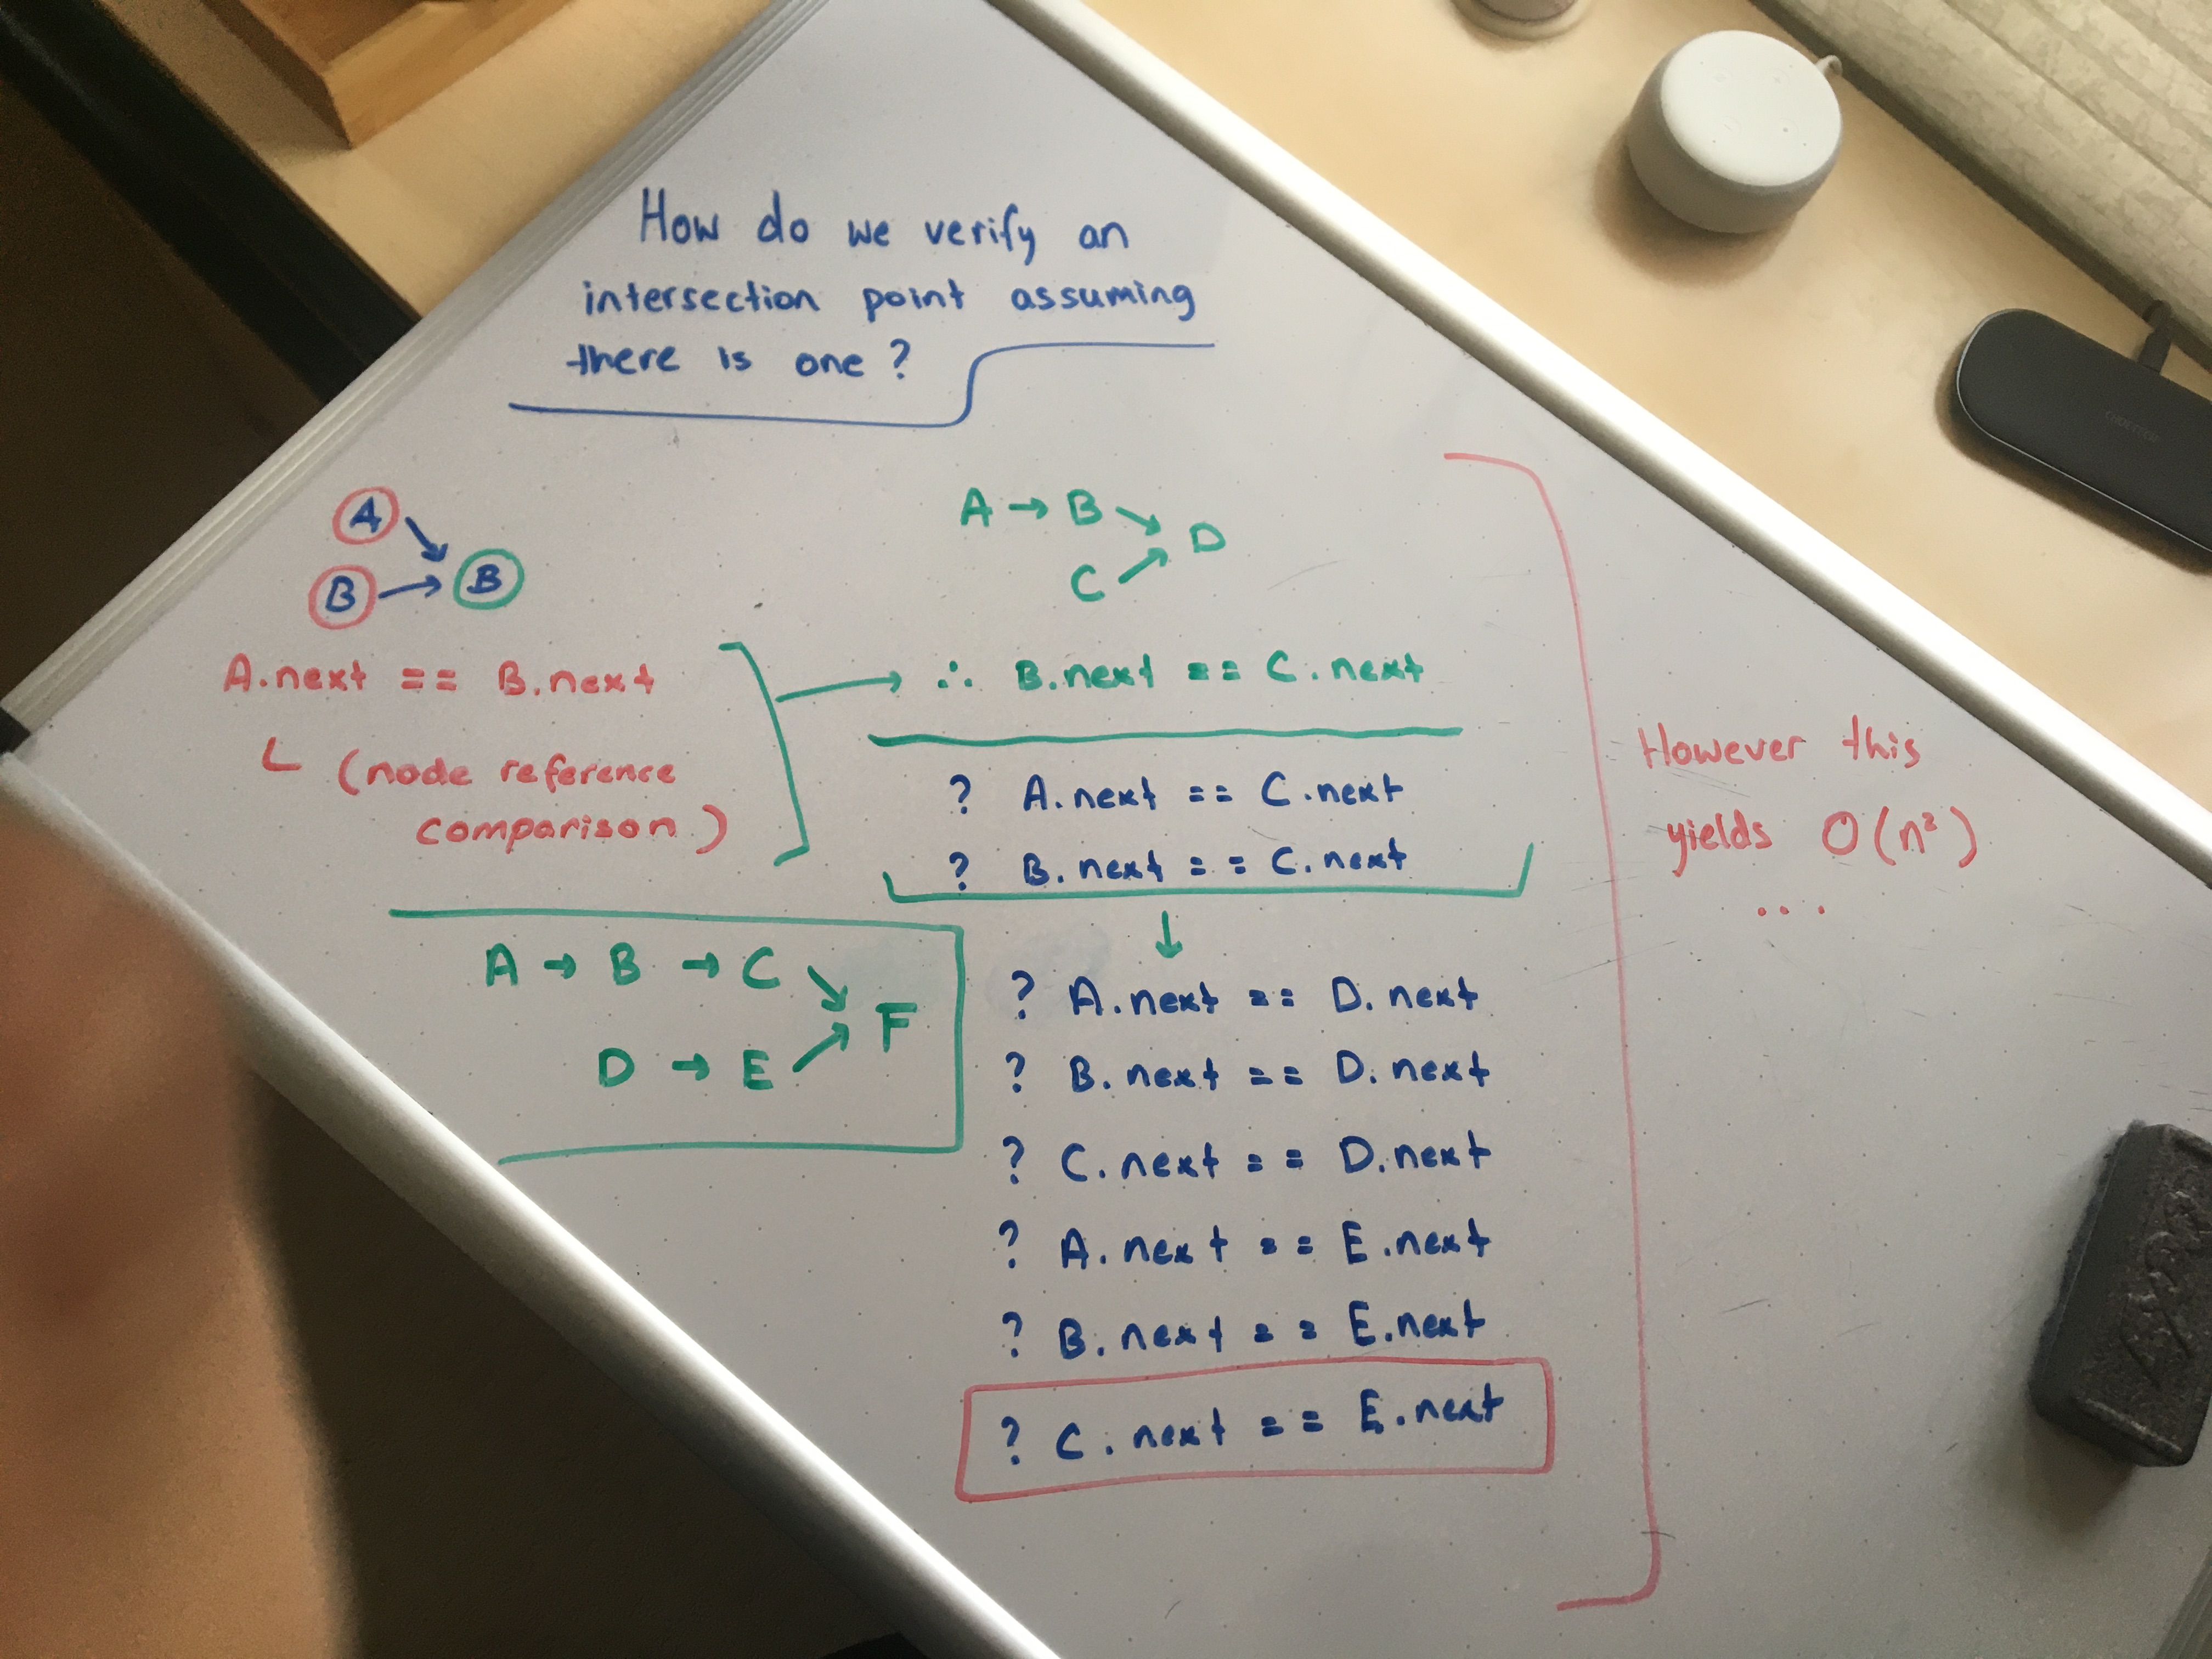 How do we verify an
intersection point assuming
there is one?
A
B → B
A.next == B.next
(node reference
comparison)
A → B
D
C
∴ B.next == C.next
? A.next == C.next
? B.next == C.next
A → B → C
F
D → E
? A.next == D.next
? B.next == D.next
? C.next == D.next
? A.next == E.next
? B.next == E.next
? C.next == E.next
However this
yields O(n²)
...